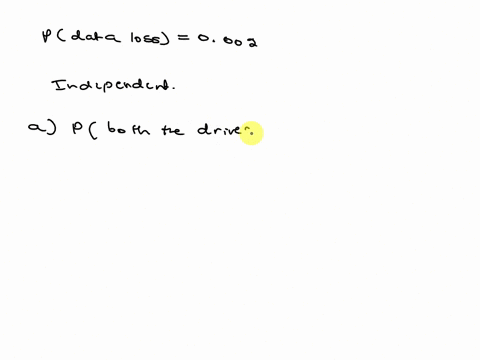 P(data loss) = 0.002
Independent.
a) P( both the drives